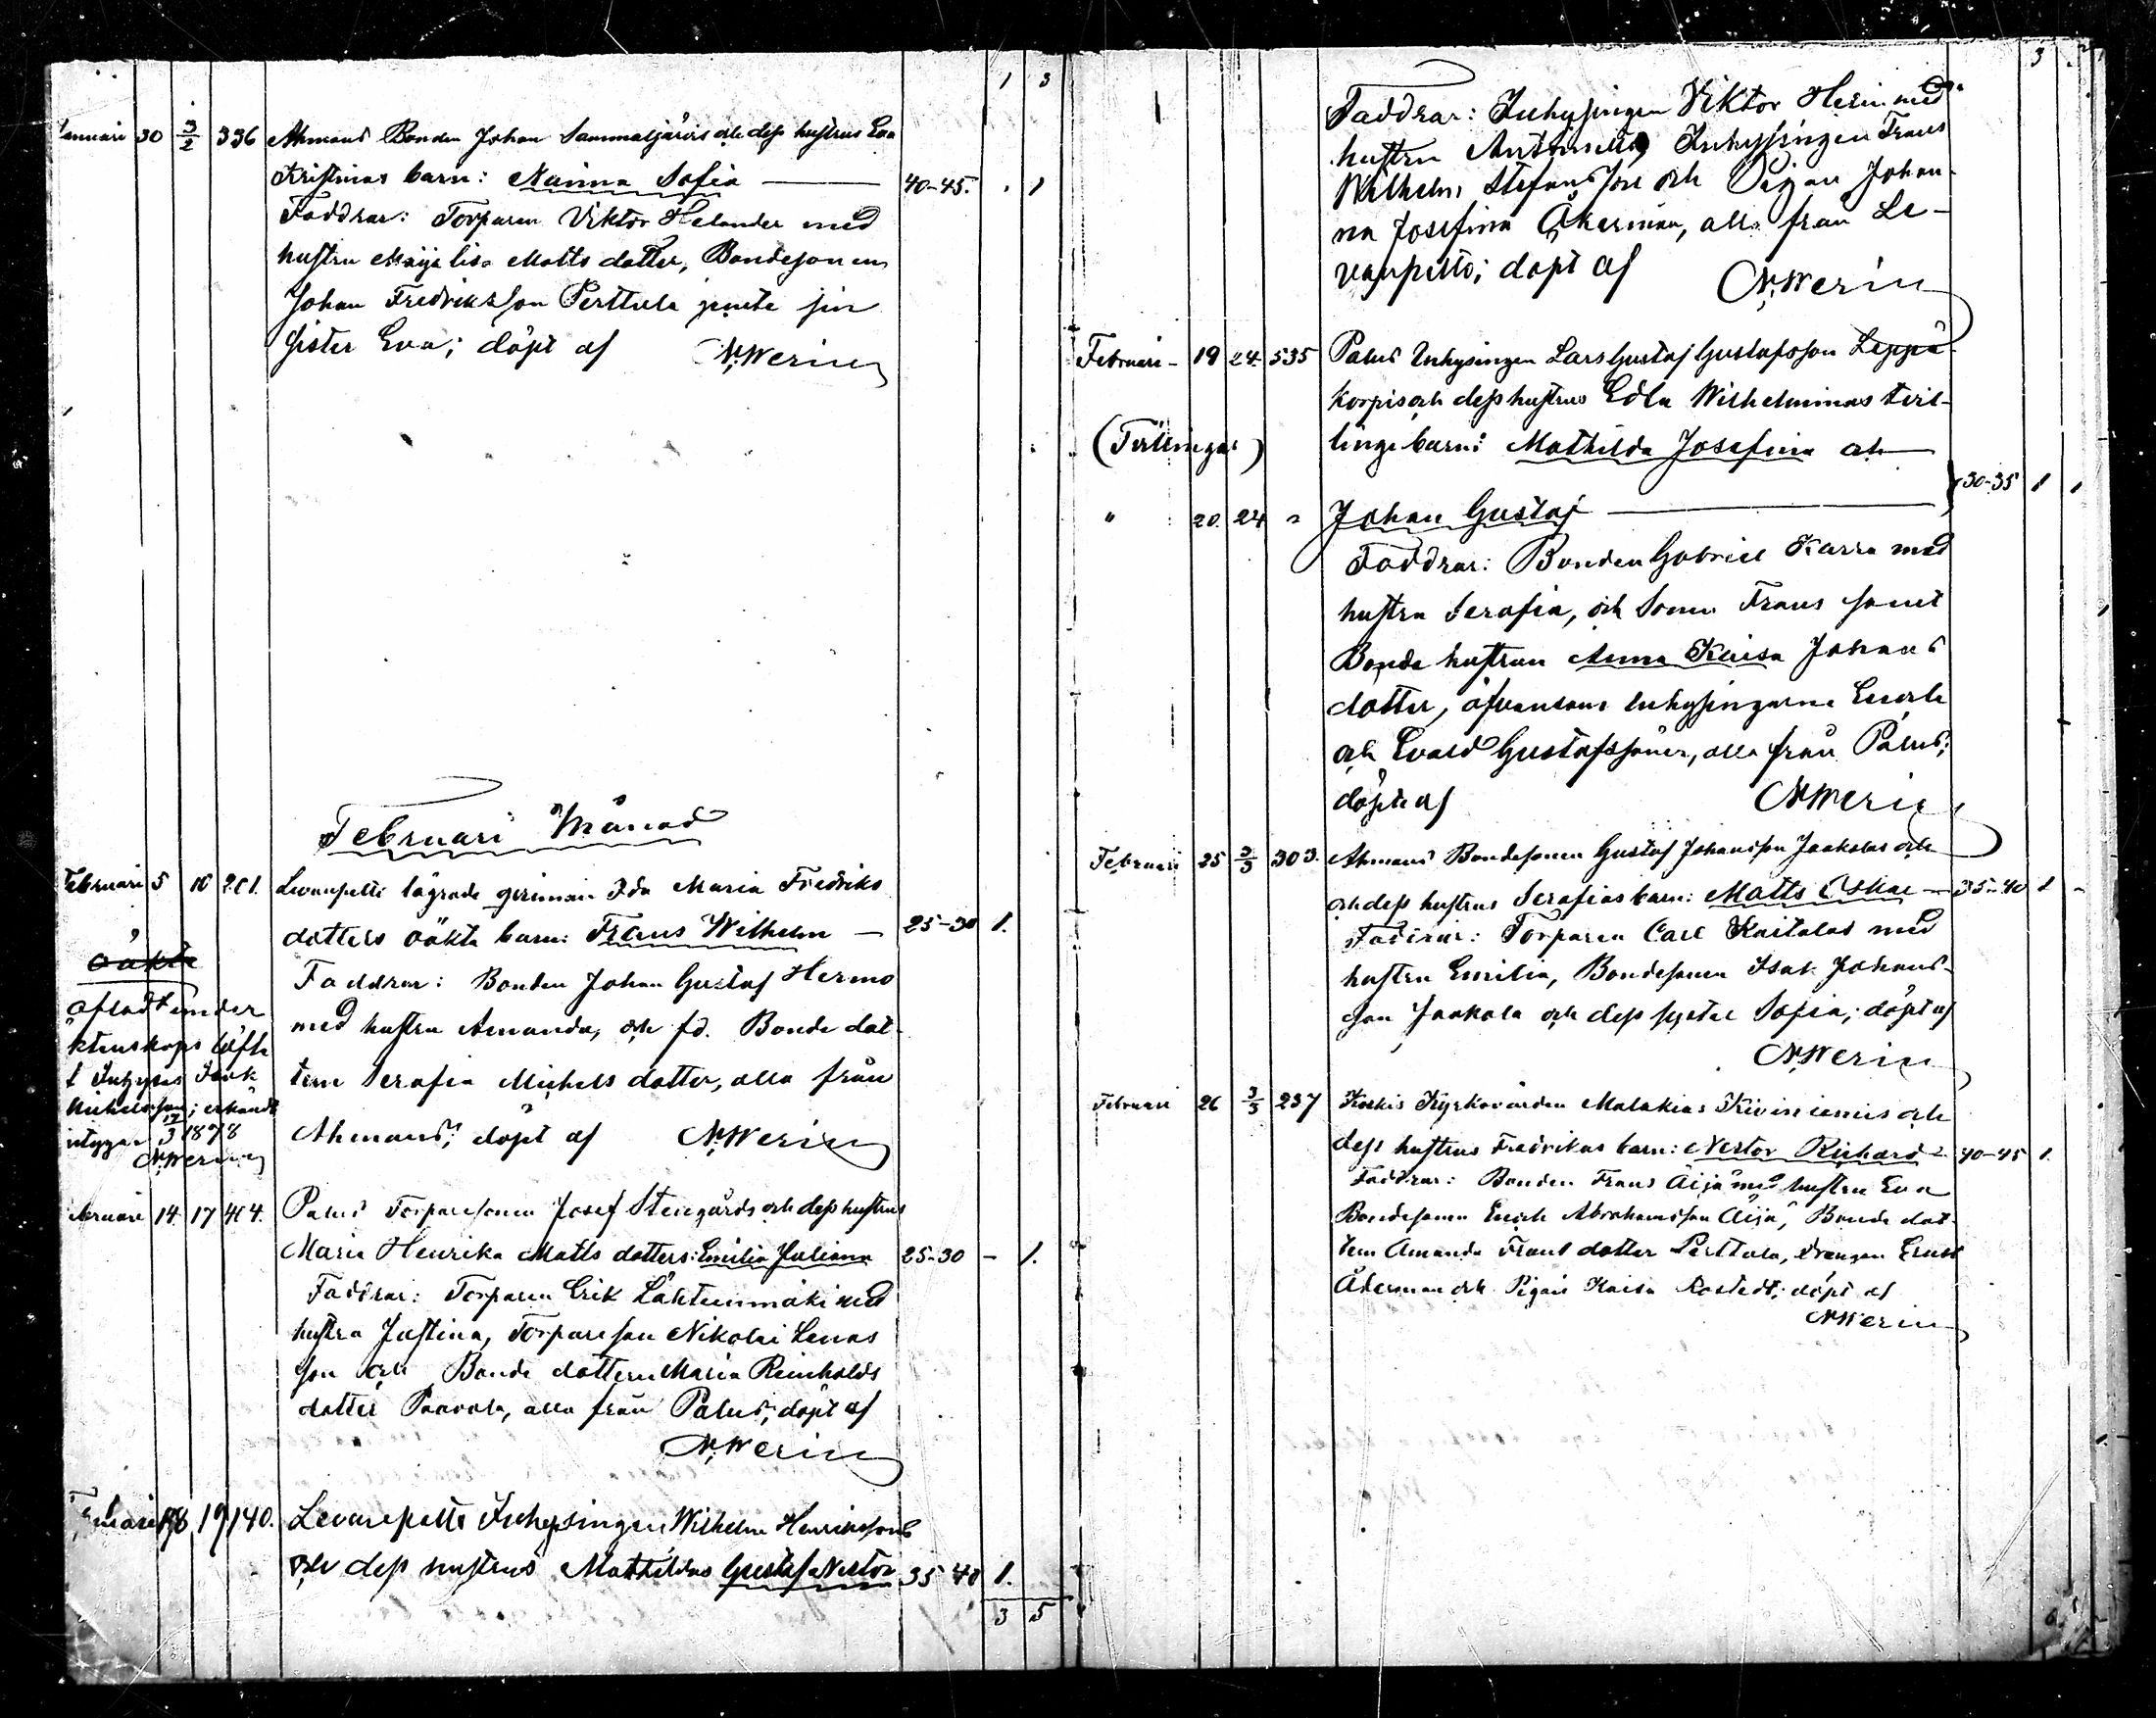 1 3
Januari 30 3/2 336 Ahmaus Bonden Johan Sammaljärvis och dess hustrus Eva
Kristinas barn: Naima Sofia — 40-45. 1
Faddrar: Torparen Viktor Helander med
hustru Maija Lisa Matts dotter, Bondesonen
Johan Fredriksson Perttula jemte sin
syster Eva; döpt af N. Werin
Februari Månad
Februari 5 10 201. Levanpelto lägrade qvinnan Ida Maria Fredriks
dotters oäkta barn: Frans Wilhelm — 25-30 1.
Faddrar: Bonden Johan Gustaf Hermo
med hustru Amanda, och fd. Bonde dot-
tern Serafia Michels dotter, alla från
Ahmaus; döpt af N. Werin
oäkta
aflad under
äktenskaps löfte
Isak
Michelsson; erkändt
intygar 1878
N. Werin
Februari 14 17 464. Palus Torparesonen Josef Stengårds och dess hustrus
Maria Henrika Matts dotters: Emilia Juliana 25-30 — 1.
Faddrar: Torparen Erik Lähteenmäki med
hustru Justina, Torpareson Nikolai Lenas
son och Bonde dottern Maria Reinholds
dotter Paavola, alla från Palus; döpt af
N. Werin
Februari 18 19 140. Levanpelto Inhysingen Wilhelm Henrikssons
och dess hustrus Mathildas Gustaf Nestor 35-40 1.
3 5
3
Faddrar: Inhysingen Viktor med
hustru Inhysingen Frans
Wilhelm Stefansson och Pigan Johan-
na Josefina Åkerman, alla från Le-
vanpelto; döpt af N. Werin
Februari 19 24. 535 Palus Inhysingen Lars Gustaf Gustafsson Leppä-
korpis och dess hustrus Edla Wilhelminas tvil-
(Tvillingar) linge barn: Mathilda Josefina och
30-35 1 1
" 20. 24 " Johan Gustaf —
Faddrar: Bonden Gabriel Karra med
hustru Serafia, och Sonen Frans samt
Bonde hustrun Anna Kaisa Johans
dotter, äfvensom Inhysingarne
och Evald Gustafssöner, alla från Palus;
döpte af N. Werin
Februari 25 3/3 303. Ahmaus Bondesonen Gustaf Johansson Jaakolas och
och dess hustrus Serafias barn: Matts Oskar — 35-40 1 -
Faddrar: Torparen Carl Kaitalas med
hustru Emilia, Bondesonen Isak Johans-
son Jaakola och dess syster Sofia; döpt af
N. Werin
Februari 26 3/3 237 Koskis Kyrkovärden Malakias Kiviniemis och
dess hustrus Fredrikas barn: Nestor Richard 40-45 1.
Faddrar: Bonden Frans Äijä med hustru Eva
Bondesonen Abrahamsson Äijä, Bonde dot-
tern Amanda Frans dotter Perttula, drängen Ernst
Åkerman och Pigan Kaisa Rostedt; döpt af
N. Werin